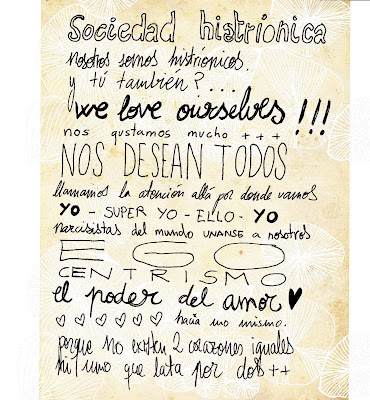 Sociedad histriónica
nosotros somos histriónicos.
y tú también?....
we love ourselves!!!
nos gustamos mucho +++
NOS DESEAN TODOS
llamamos la atención allá por donde vamos
YO - SUPER YO - ELLO - YO
narcisistas del mundo UNANSE a nosotros
EGO
CENTRISMO
el poder del amor ♥
♡ ♡ ♡ ♡ ♡ ♡ hacia uno mismo.
porque no existen 2 corazones iguales
ni uno que lata por dos ++